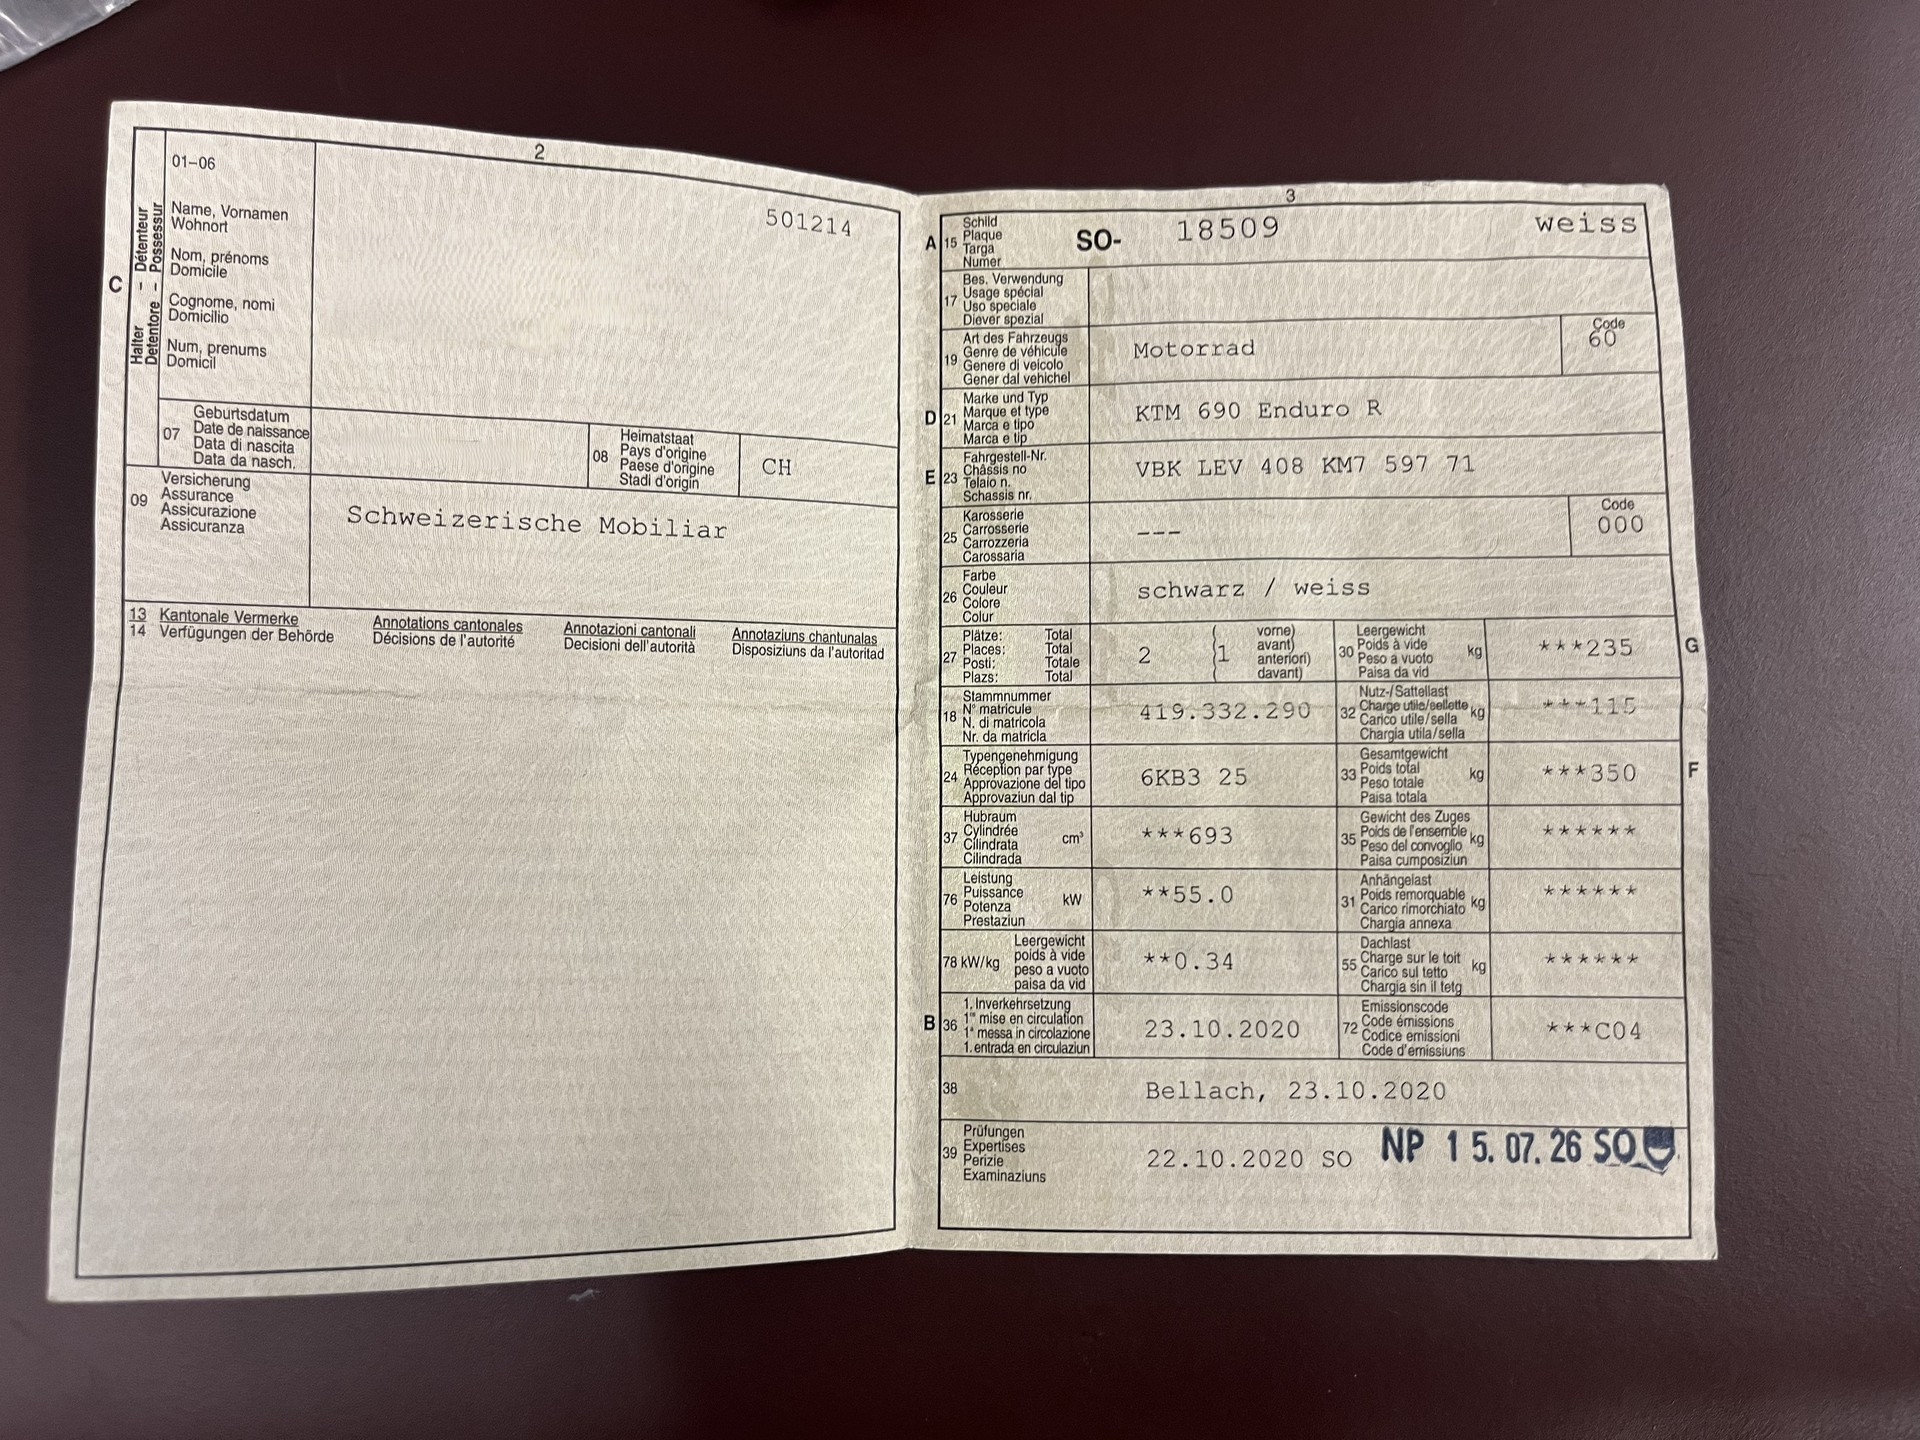 2
C
Halter – Détenteur
Detentore – Possessur
01–06
501214
Name, Vornamen
Wohnort
Nom, prénoms
Domicile
Cognome, nomi
Domicilio
Num, prenums
Domicil
07
Geburtsdatum
Date de naissance
Data di nascita
Data da nasch.
08
Heimatstaat
Pays d'origine
Paese d'origine
Stadi d'origin
CH
09
Versicherung
Assurance
Assicurazione
Assicuranza
Schweizerische Mobiliar
13 Kantonale Vermerke Annotations cantonales Annotazioni cantonali Annotaziuns chantunalas
14 Verfügungen der Behörde Décisions de l'autorité Decisioni dell'autorità Disposiziuns da l'autoritad
3
A 15
Schild
Plaque
Targa
Numer
SO- 18509 weiss
17
Bes. Verwendung
Usage spécial
Uso speciale
Diever spezial
19
Art des Fahrzeugs
Genre de véhicule
Genere di veicolo
Gener dal vehichel
Motorrad
Code
60
D 21
Marke und Typ
Marque et type
Marca e tipo
Marca e tip
KTM 690 Enduro R
E 23
Fahrgestell-Nr.
Châssis no
Telaio n.
Schassis nr.
VBK LEV 408 KM7 597 71
25
Karosserie
Carrosserie
Carrozzeria
Carossaria
---
Code
000
26
Farbe
Couleur
Colore
Colur
schwarz / weiss
27
Plätze: Total
Places: Total
Posti: Totale
Plazs: Total
2 1
vorne)
avant)
anteriori)
davant)
30
Leergewicht
Poids à vide
Peso a vuoto
Paisa da vid
kg
***235
G
18
Stammnummer
N° matricule
N. di matricola
Nr. da matricla
419.332.290
32
Nutz-/Sattellast
Charge utile/sellette
Carico utile/sella
Chargia utila/sella
kg
***115
24
Typengenehmigung
Réception par type
Approvazione del tipo
Approvaziun dal tip
6KB3 25
33
Gesamtgewicht
Poids total
Peso totale
Paisa totala
kg
***350
F
37
Hubraum
Cylindrée
Cilindrata
Cilindrada
cm³
***693
35
Gewicht des Zuges
Poids de l'ensemble
Peso del convoglio
Paisa cumposiziun
kg
******
76
Leistung
Puissance
Potenza
Prestaziun
kW
**55.0
31
Anhängelast
Poids remorquable
Carico rimorchiato
Chargia annexa
kg
******
78 kW/kg
Leergewicht
poids à vide
peso a vuoto
paisa da vid
**0.34
55
Dachlast
Charge sur le toit
Carico sul tetto
Chargia sin il tetg
kg
******
B 36
1. Inverkehrsetzung
1re mise en circulation
1a messa in circolazione
1. entrada en circulaziun
23.10.2020
72
Emissionscode
Code émissions
Codice emissioni
Code d'émissiuns
***C04
38
Bellach, 23.10.2020
39
Prüfungen
Expertises
Perizie
Examinaziuns
22.10.2020 SO
NP 15.07.26 SO